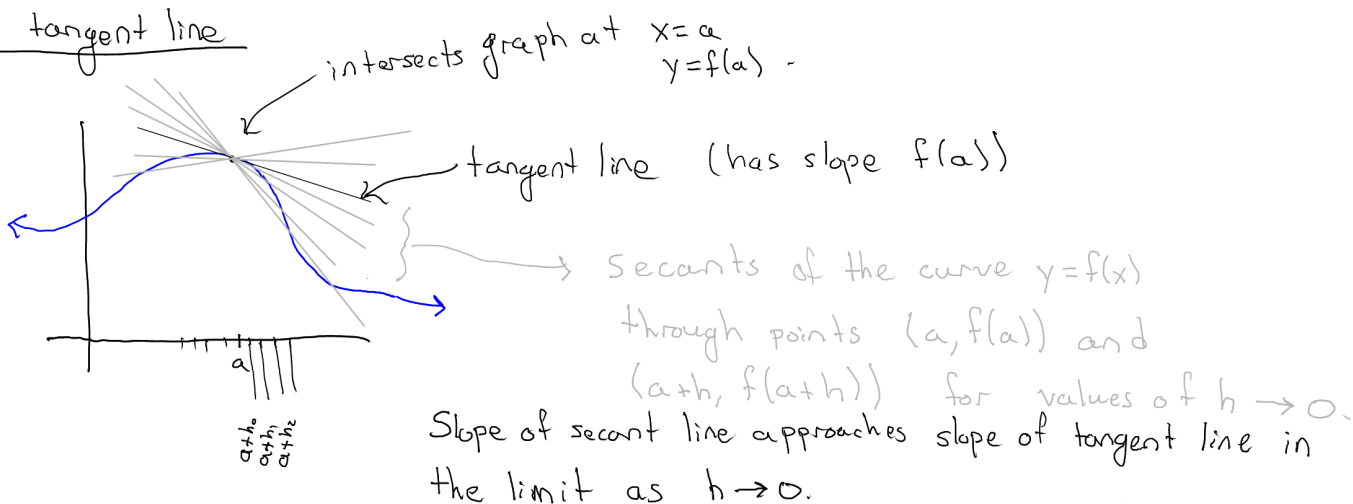 tangent line
intersects graph at x=a
y=f(a)
tangent line (has slope f(a))
Secants of the curve y=f(x)
through points (a, f(a)) and
(a+h, f(a+h)) for values of h → 0.
a
a+h₀
a+h₁
a+h₂
Slope of secant line approaches slope of tangent line in
the limit as h → 0.